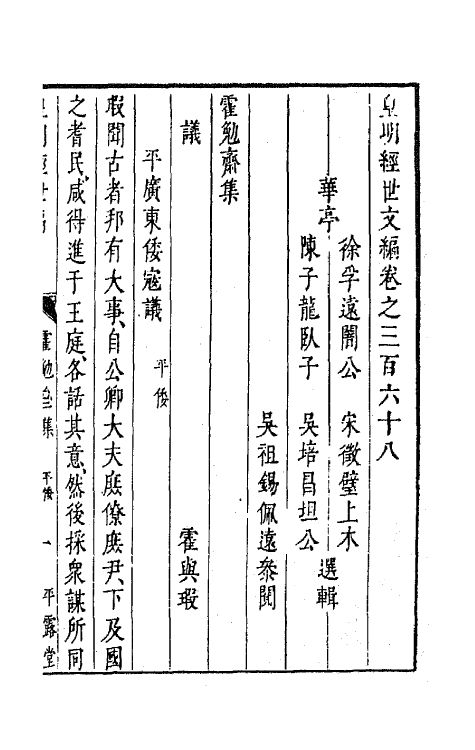 皇明經世文編卷之三百六十八
徐孚遠闇公 宋徵璧上木
華亭 選輯
陳子龍臥子 吳培昌坦公
吳祖錫佩遠參閱
霍勉齋集
議 霍與瑕
平廣東倭寇議 平倭
瑕聞古者邦有大事、自公卿大夫庶僚庶尹、下及國
之耆民、咸得進于王庭、各話其意、然後採衆謀所同
皇明經世編 霍勉齋集 平倭 一 平露堂